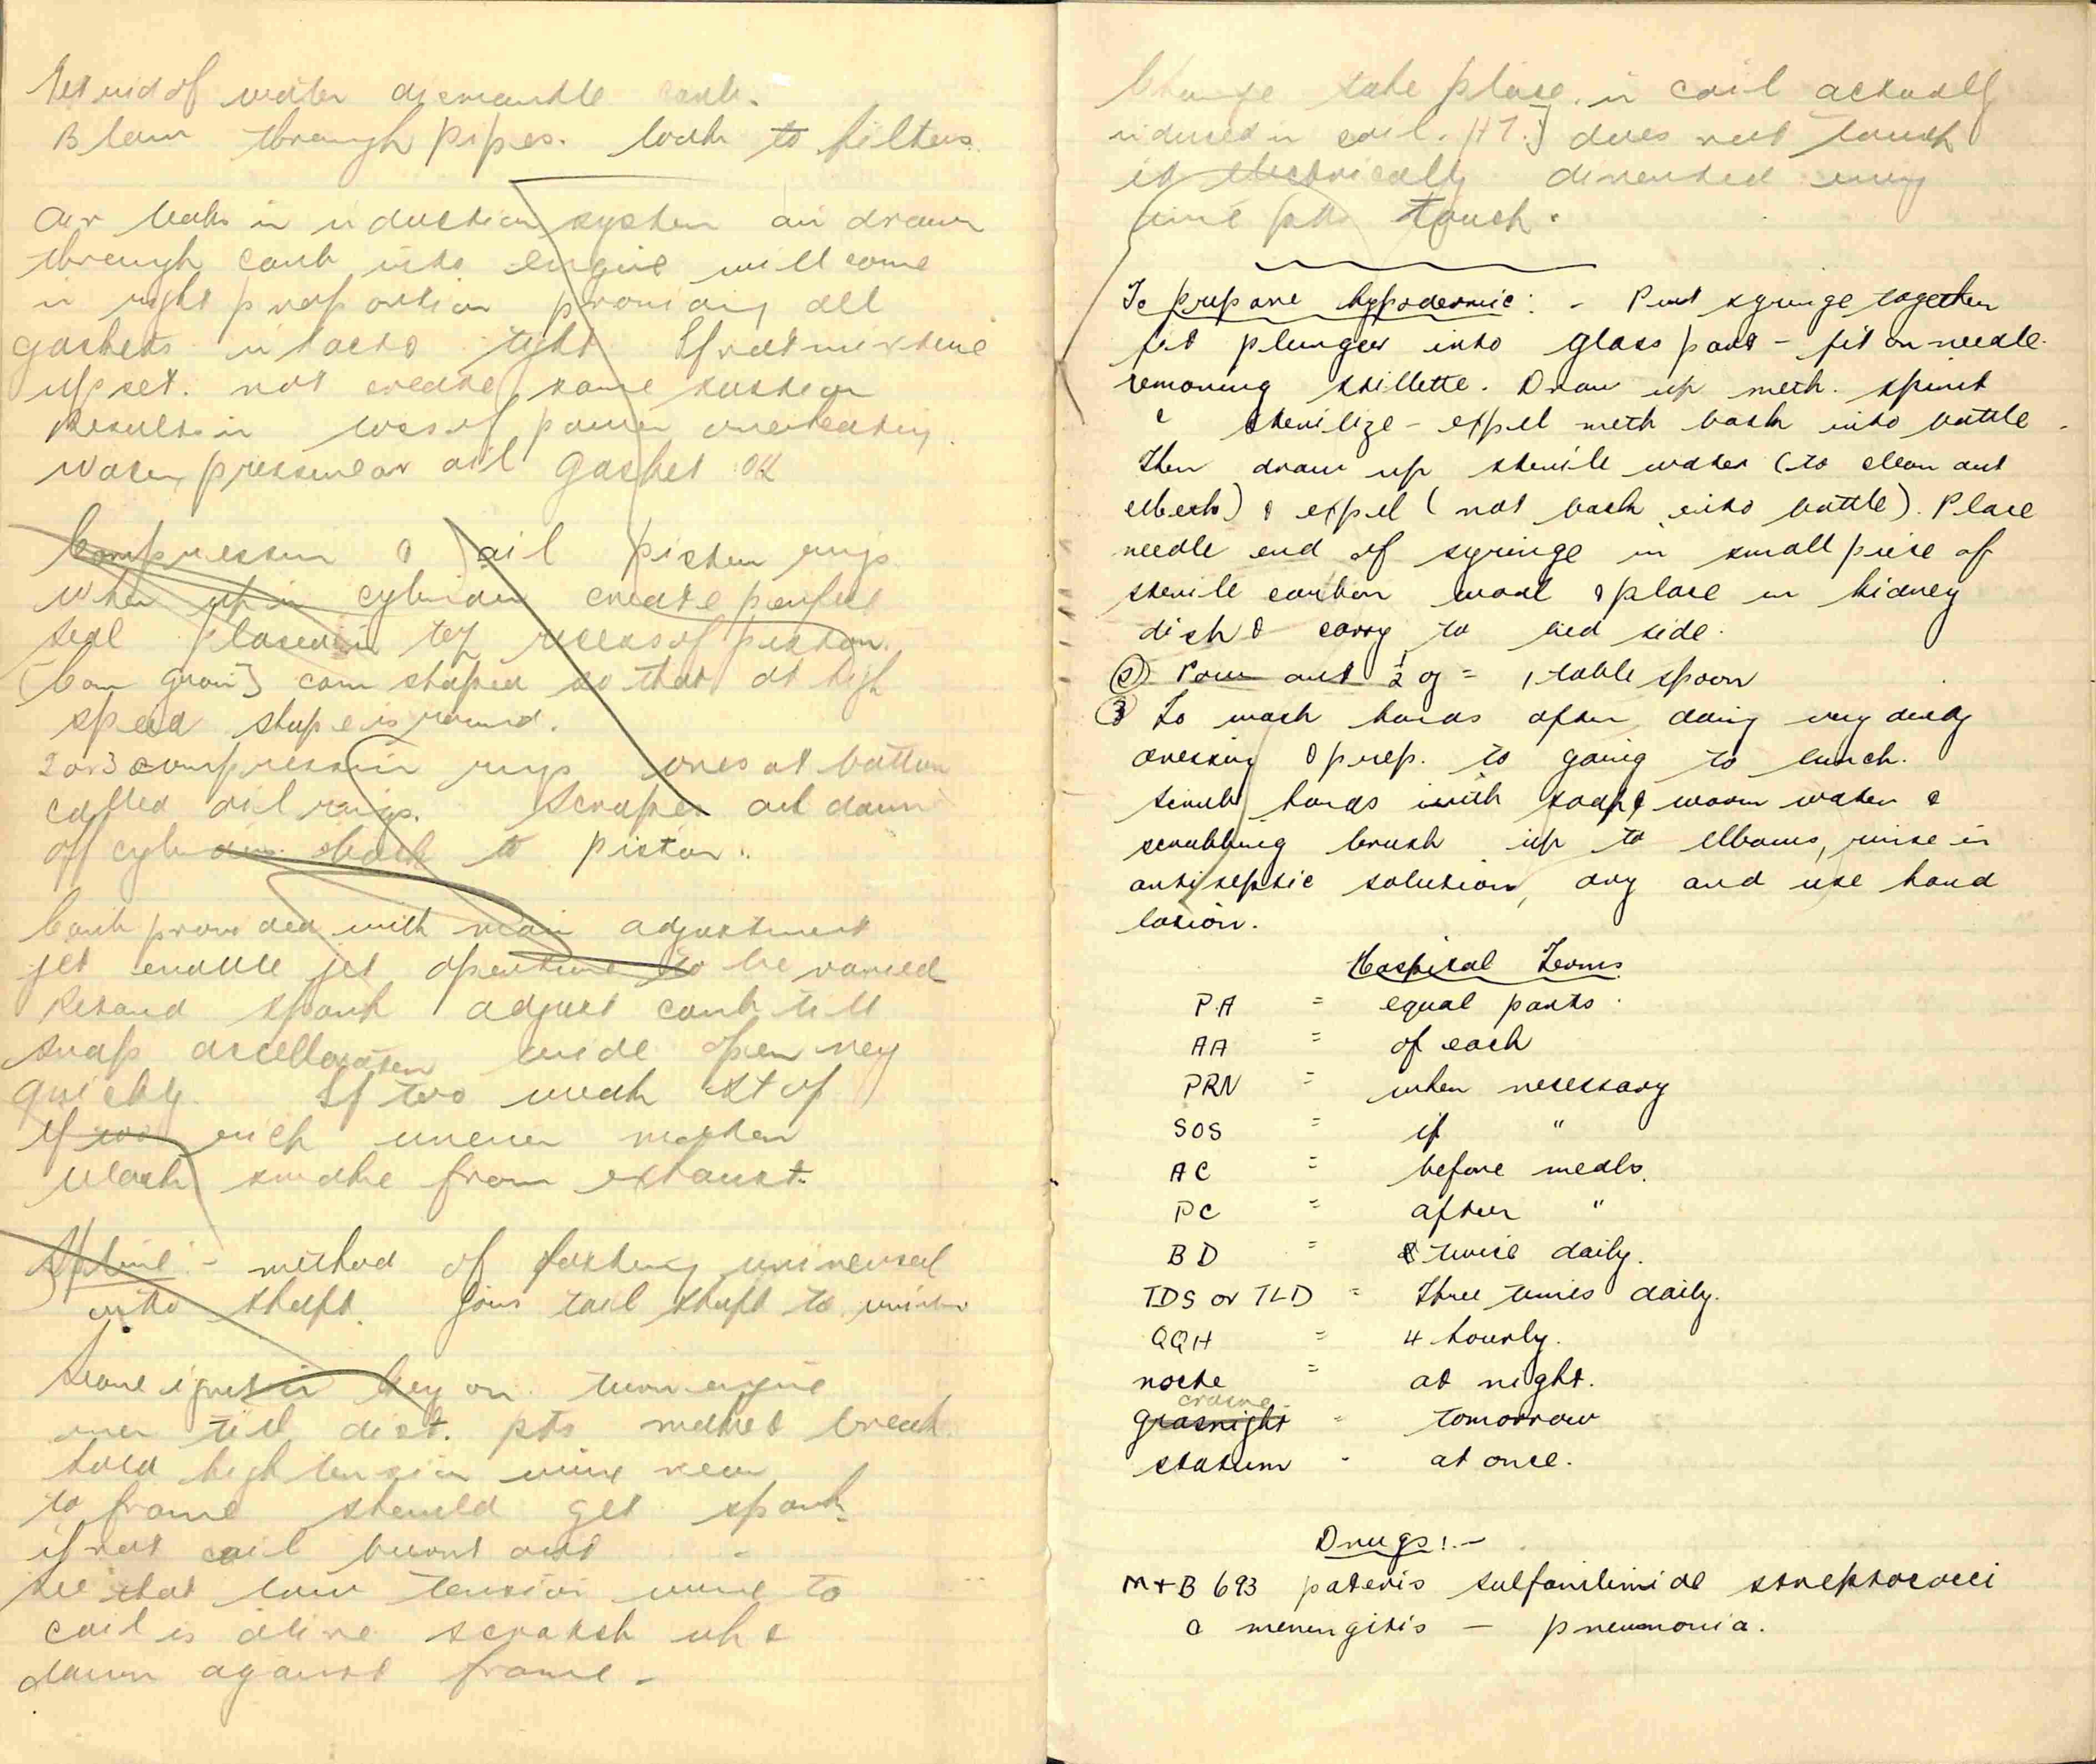 Get rid of water dismantle carb.
Blow through pipes. look to filters.
Air leaks in induction system air drawn
through carb into engine will come
in right proportion providing all
gaskets intact & tight If not mixture
upset. not create same suction
Results in loss of power overheating.
Water, pressure or oil gasket OK
Compression & oil piston rings
when up in cylinder create perfect
seal placed in top recess of piston.
[Cam grou] cam shaped so that at high
speed shape is round.
2 or 3 compression rings ones at bottom
called oil rings. Scrapes oil down
off cylinder back to piston.
Carb provided with main adjustment
jet enable jet aperture to be varied
Retard spark adjust carb till
snap accellorator wide open rev
quickly. If too weak stop
If too rich uneven motion
black smoke from exhaust.
Spline :- method of fastening universal
into shaft. Joins tail shaft to
Leave ignition key on turn engine
over till dist. pts make & break.
hold high tension wire near
to frame should get spark.
if not coil burnt out -
See that low tension wire to
coil is alive scratch up &
down against frame -
Change take place in coil actually
induced in coil. HT.] does not touch
it electrically every
time pts touch.
To prepare hypodermic: - Put syringe together
fit plunger into glass part - fit on needle
removing stillette. Draw up meth. spirit
& sterilize - expel meth back into bottle.
Then draw up sterile water (to clean out
) & expel (not back into bottle). Place
needle end of syringe in small piece of
sterile cotton wool & place in kidney
dish & carry to bed side.
(2) Pour out ½ oz = 1 table spoon
(3) To wash hands after doing very dirty
dressing & prep. to going to lunch.
Scrub hands with soap & warm water &
scrubbing brush up to elbows, rinse in
antiseptic solution, dry and use hand
lotion.
Hospital Terms
P.A = equal parts.
AA = of each
PRN = when necessary
SOS = if "
AC = before meals.
PC = after "
BD = twice daily.
TDS or TLD = three times daily.
QQH = 4 hourly.
nocte = at night.
craine
grasnight = tomorrow
statum - at once.
Drugs:-
M+B 693 sulfanilimide streptococci
& meningitis - pneumonia.